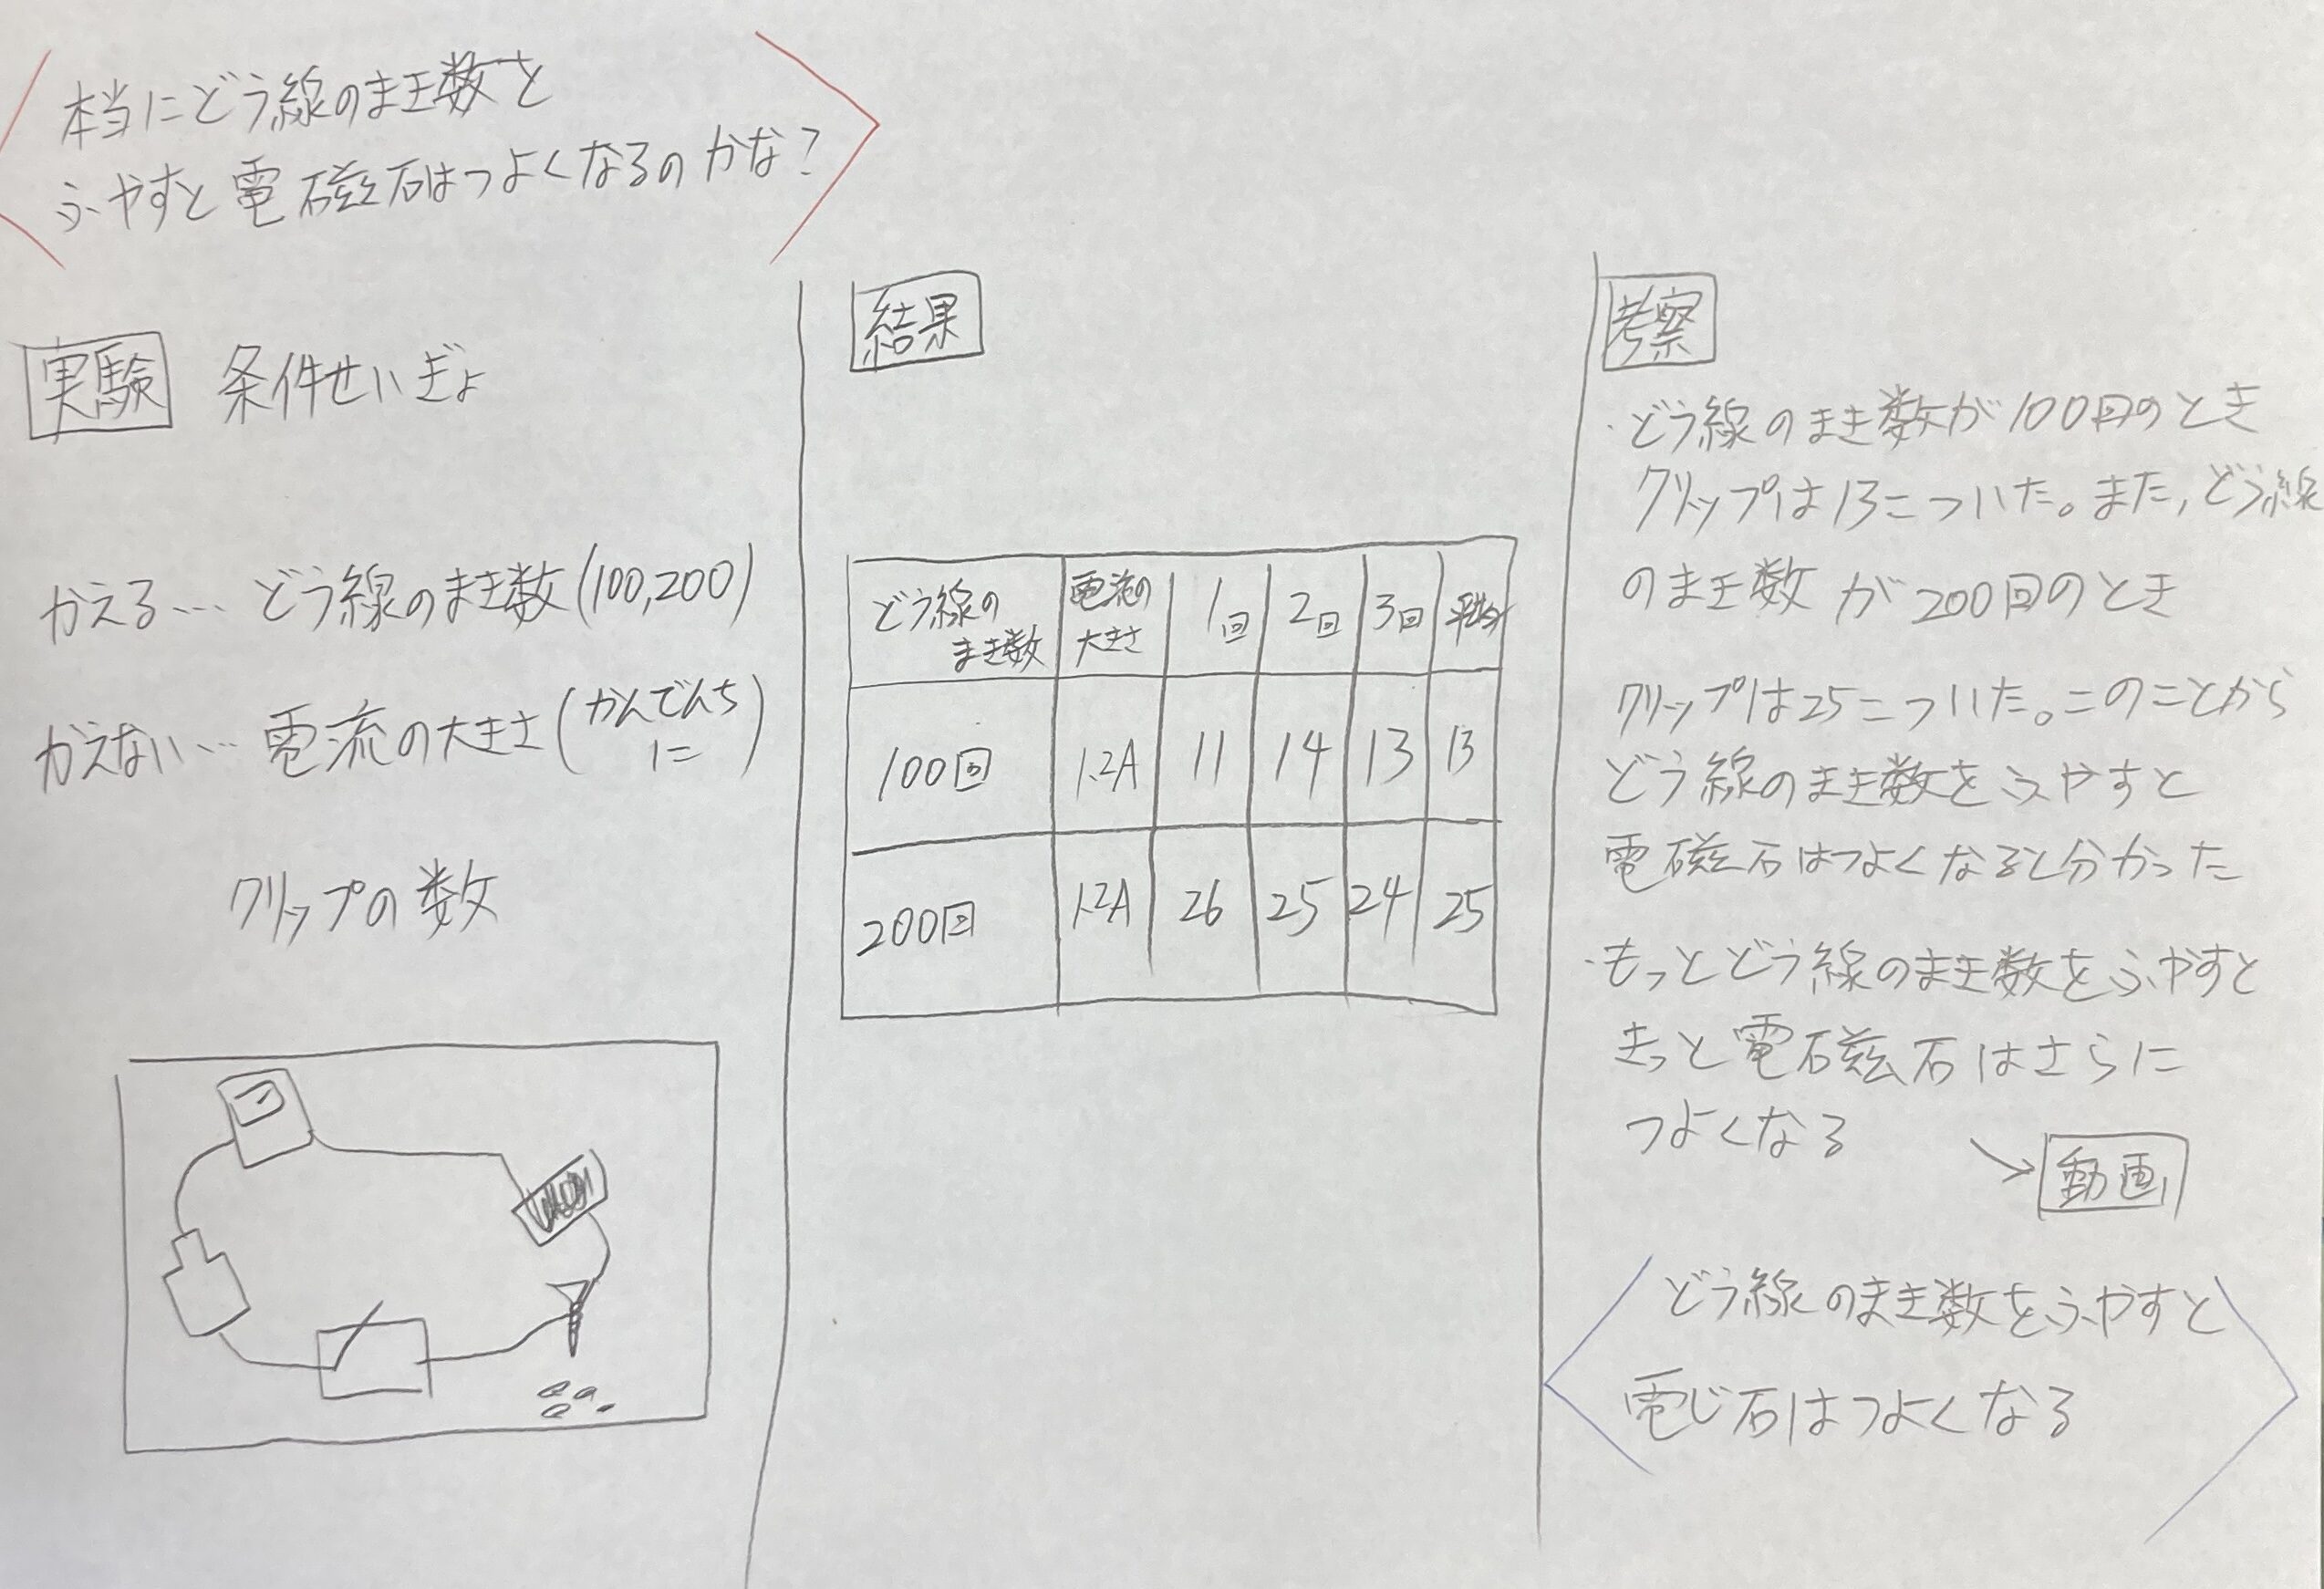 本当にどう線のまき数を
ふやすと電磁石はつよくなるのかな?
実験 条件せいぎょ
かえる… どう線のまき数(100,200)
かえない… 電流の大きさ(かんでんち
1こ)
クリップの数
結果
どう線の
まき数
電流の
大きさ
1回
2回
3回
平均
100回 1.2A 11 14 13 13
200回 1.2A 26 25 24 25
考察
・どう線のまき数が100回のとき
クリップは13こついた。また,どう線
のまき数が200回のとき
クリップは25こついた。このことから
どう線のまき数をふやすと
電磁石はつよくなると分かった
・もっとどう線のまき数をふやすと
きっと電磁石はさらに
つよくなる
→動画
どう線のまき数をふやすと
電じ石はつよくなる